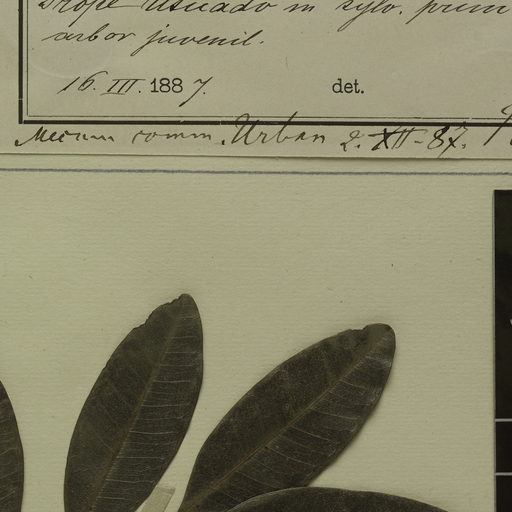 Prope Utuado in sylv. prim
arbor juvenil.
16. III. 1887. det.
Mecum comm. Urban 2. XII-87.